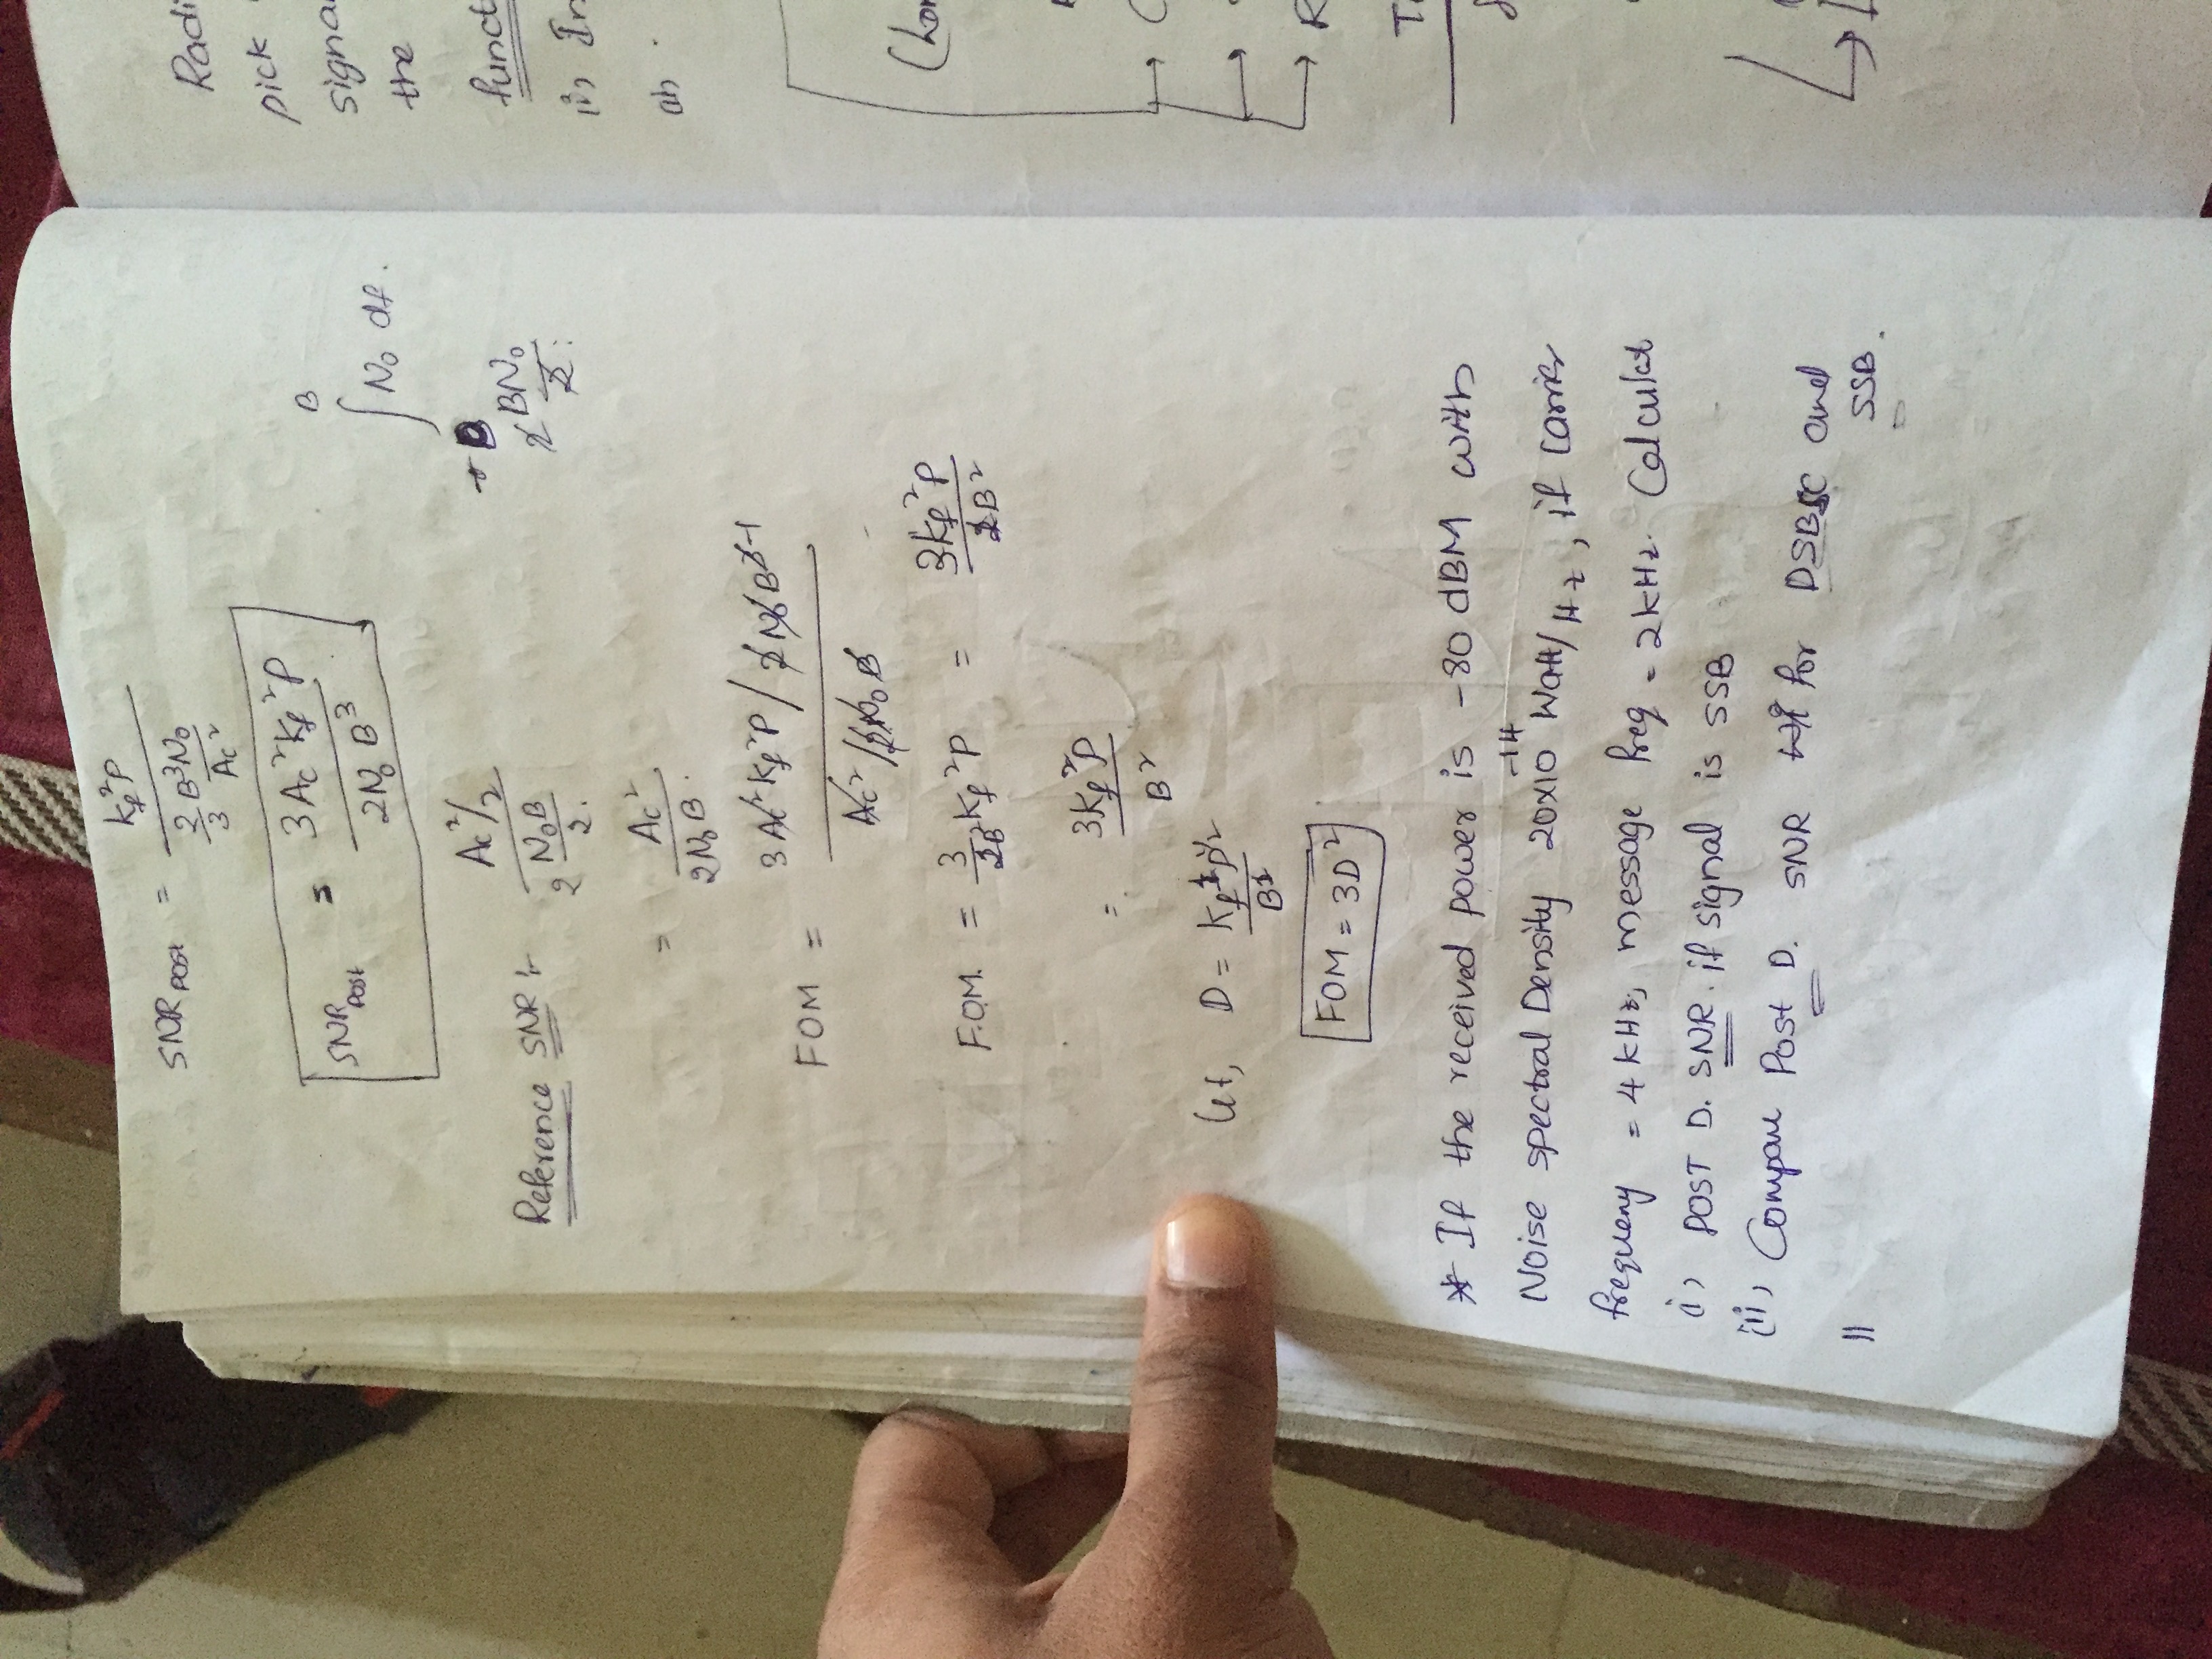 SNR POST = kf²P / (2/3 B³N₀/Ac²)
SNR POST = 3Ac²kf²P / 2N₀B³
B
∫ N₀ df.
-B
2 BN₀/2 :
Reference SNR :- (Ac²/2) / (2 N₀B/2.)
= Ac² / 2N₀B.
FOM = (3Ac²kf²P / 2N₀B³⁻¹) / (Ac² / 2N₀B)
F.O.M. = 3/2B² kf²P = 3kf²P / 2B²
= 3kf²P / B²
let, D = kf¹P^1/2 / B¹
FOM = 3D²
* If the received power is -80 dBM with
Noise spectral Density 20x10⁻¹⁴ Watt/Hz, if carrier
frequeny = 4 kHz, message freq = 2kHz. Calculat
(i) POST D. SNR. if signal is SSB
(ii) Compare Post D. SNR for DSBSC and
SSB.
||
Radi
pick
signa
the
funct
(ii) In
an
(Lon
C
R
T